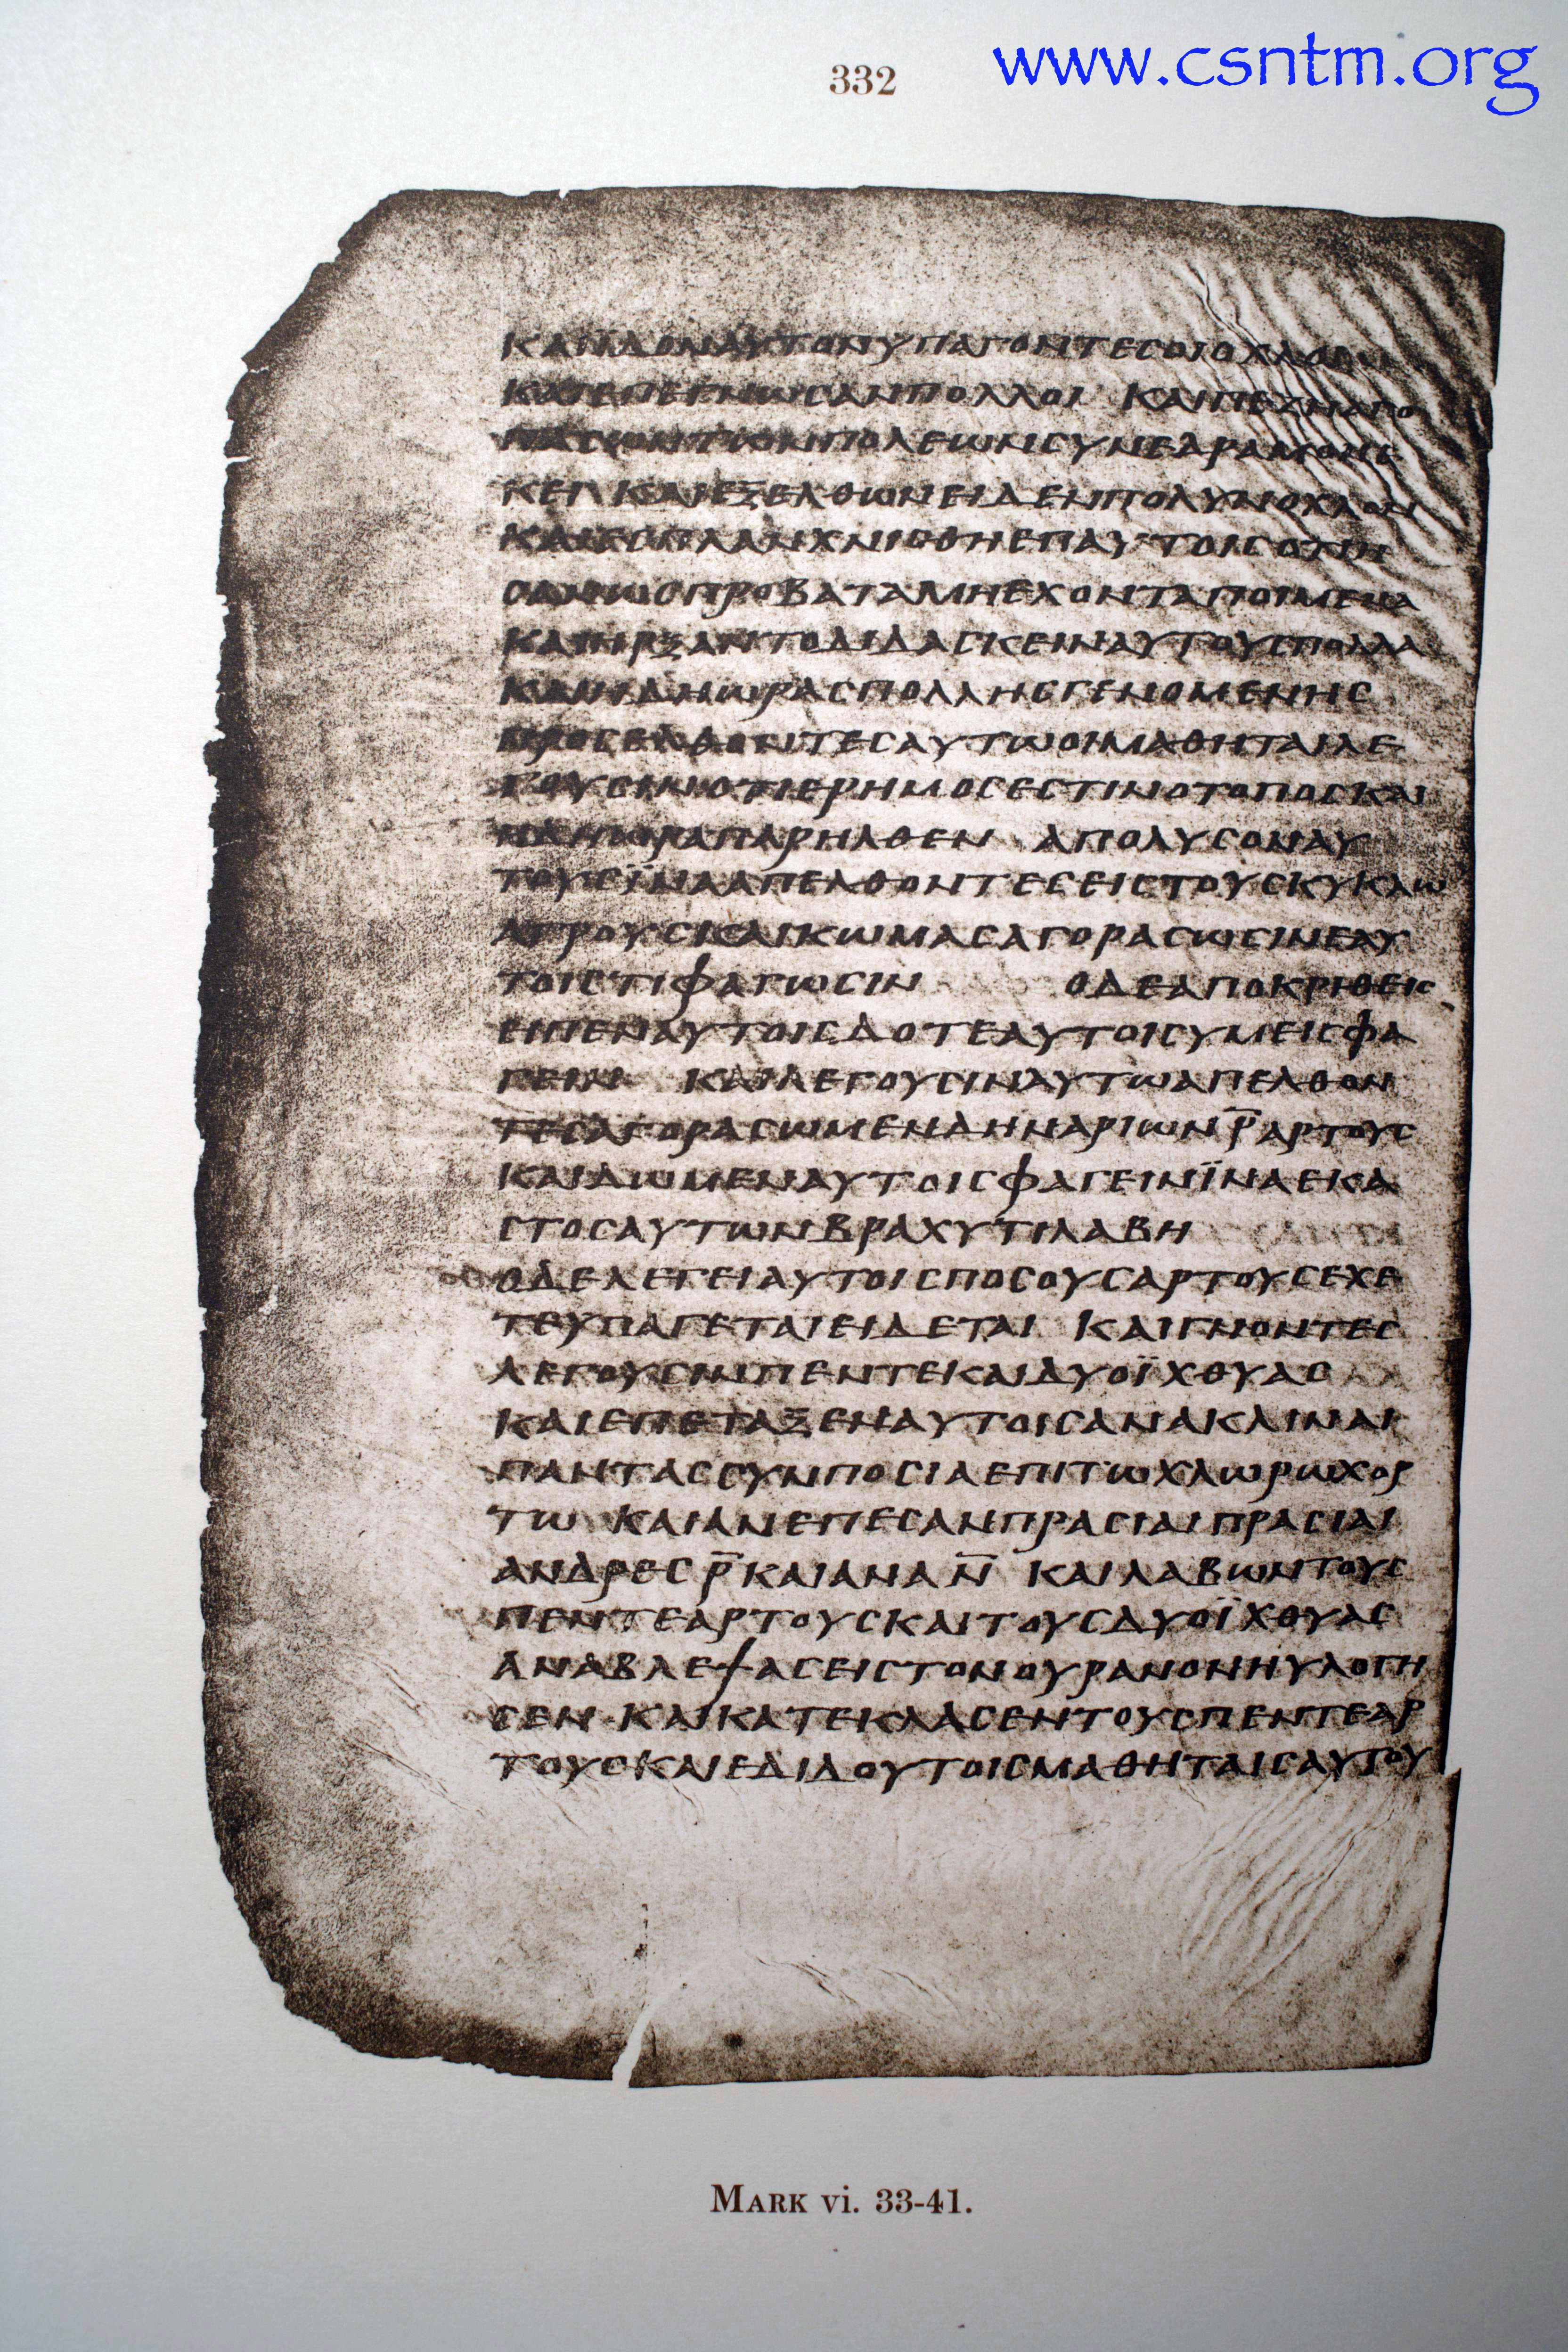 332
www.csntm.org
ΚΑΙΪΔΟΝΑΥΤΟΝΥΠΑΓΟΝΤΕϹΟΙΟΧΛΟΙ
ΚΑΙΕΠΕΓΝΩϹΑΝΠΟΛΛΟΙ ΚΑΙΠΕΖΗΑΠΟ
ΠΑϹΩΝΤΩΝΠΟΛΕΩΝϹΥΝΕΔΡΑΜΟΝΕ
ΚΕΙ ΚΑΙΕΞΕΛΘΩΝΕΙΔΕΝΠΟΛΥΝΟΧΛΟΝ
ΚΑΙΕϹΠΛΑΝΧΝΙϹΘΗΕΠΑΥΤΟΙϹΟΤΙΗ
ϹΑΝΩϹΠΡΟΒΑΤΑΜΗΕΧΟΝΤΑΠΟΙΜΕΝΑ
ΚΑΙΗΡΞΑΝΤΟΔΙΔΑϹΚΕΙΝΑΥΤΟΥϹΠΟΛΛΑ
ΚΑΙΗΔΗΩΡΑϹΠΟΛΛΗϹΓΕΝΟΜΕΝΗϹ
ΠΡΟϹΕΛΘΟΝΤΕϹΑΥΤΩΟΙΜΑΘΗΤΑΙΛΕ
ΓΟΥϹΙΝΟΤΙΕΡΗΜΟϹΕϹΤΙΝΟΤΟΠΟϹΚΑΙ
ΗΔΗΩΡΑΠΑΡΗΛΘΕΝ ΑΠΟΛΥϹΟΝΑΥ
ΤΟΥϹΪΝΑΑΠΕΛΘΟΝΤΕϹΕΙϹΤΟΥϹΚΥΚΛΩ
ΑΓΡΟΥϹΚΑΙΚΩΜΑϹΑΓΟΡΑϹΩϹΙΝΕΑΥ
ΤΟΙϹΤΙΦΑΓΩϹΙΝ ΟΔΕΑΠΟΚΡΙΘΕΙϹ
ΕΙΠΕΝΑΥΤΟΙϹΔΟΤΕΑΥΤΟΙϹΥΜΕΙϹΦΑ
ΓΕΙΝ ΚΑΙΛΕΓΟΥϹΙΝΑΥΤΩΑΠΕΛΘΟΝ
ΤΕϹΑΓΟΡΑϹΩΜΕΝΔΗΝΑΡΙΩΝΡ̅ΑΡΤΟΥϹ
ΚΑΙΔΩΜΕΝΑΥΤΟΙϹΦΑΓΕΙΝΪΝΑΕΚΑ
ϹΤΟϹΑΥΤΩΝΒΡΑΧΥΤΙΛΑΒΗ
ΟΔΕΛΕΓΕΙΑΥΤΟΙϹΠΟϹΟΥϹΑΡΤΟΥϹΕΧΕ
ΤΕΥΠΑΓΕΤΑΙΕΙΔΕΤΑΙ ΚΑΙΓΝΟΝΤΕϹ
ΛΕΓΟΥϹΙΝΠΕΝΤΕΚΑΙΔΥΟΪΧΘΥΑϹ
ΚΑΙΕΠΕΤΑΞΕΝΑΥΤΟΙϹΑΝΑΚΛΙΝΑΙ
ΠΑΝΤΑϹϹΥΝΠΟϹΙΑΕΠΙΤΩΧΛΩΡΩΧΟΡ
ΤΩ ΚΑΙΑΝΕΠΕϹΑΝΠΡΑϹΙΑΙΠΡΑϹΙΑΙ
ΑΝΔΡΕϹΡ̅ΚΑΙΑΝΑΝ̅ ΚΑΙΛΑΒΩΝΤΟΥϹ
ΠΕΝΤΕΑΡΤΟΥϹΚΑΙΤΟΥϹΔΥΟΪΧΘΥΑϹ
ΑΝΑΒΛΕΨΑϹΕΙϹΤΟΝΟΥΡΑΝΟΝΗΥΛΟΓΗ
ϹΕΝ ΚΑΙΚΑΤΕΚΛΑϹΕΝΤΟΥϹΠΕΝΤΕΑΡ
ΤΟΥϹΚΑΙΕΔΙΔΟΥΤΟΙϹΜΑΘΗΤΑΙϹΑΥΤΟΥ
MARK vi. 33-41.